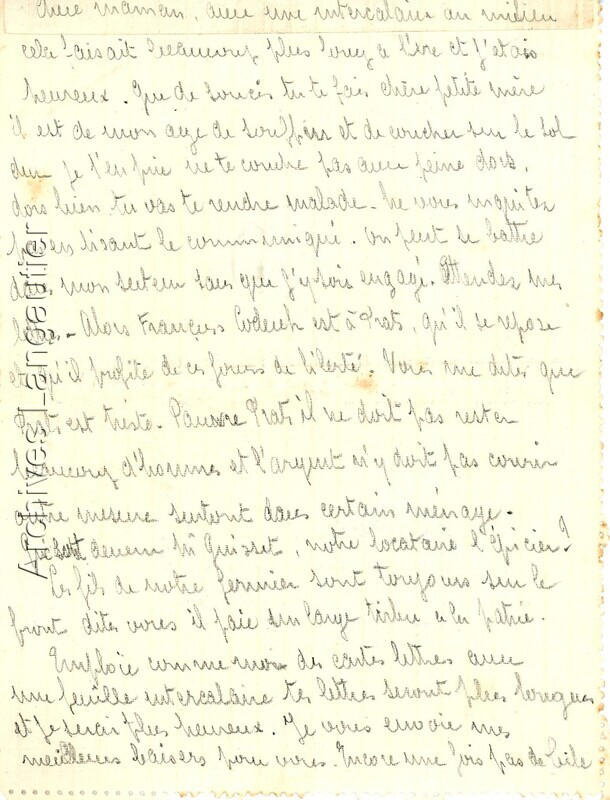 chère maman, avec une intercalaire au milieu
cela faisait beaucoup plus long à lire et j'étais
heureux. Que de soucis tu te fais chère petite mère
il est de mon age de souffrir et de coucher sur le sol
dur je t'en prie ne te couche pas avec peine dors,
dors bien tu vas te rendre malade. Ne vous inquietez
pas en lisant le communiqué. On peut se battre
dans mon secteur sans que j'y sois engagé. Attendez mes
lettres - Alors François Coderch est à Prats, qu'il se repose
et qu'il profite de ces jours de liberté. Vous me dites que
Prats est triste. Pauvre Prats il ne doit pas rester
beaucoup d'hommes et l'argent n'y doit pas courir
outre mesure surtout dans certains ménage.
devenu Mr Quisset, notre locataire l'épicier?
Les fils de notre fermier sont toujours sur le
front dites vous il paie son large tribu à la patrie.
Emploie comme moi des cartes lettres avec
une feuille intercalaire tes lettres seront plus longues
et je serai plus heureux. Je vous envoie mes
meilleurs baisers pour vous. Encore une fois pas de bile
Archives Larugaulier